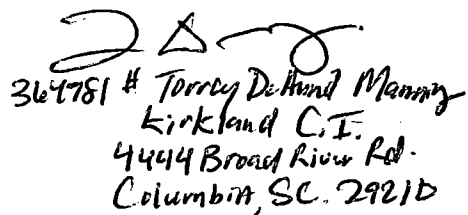 364781 # Torrey Manning
Kirkland C.I.
4444 Broad River Rd.
Columbia, SC. 29210